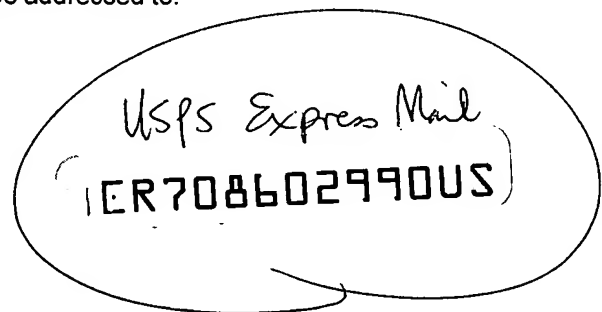 addressed to:
USPS Express Mail
ER708602990US